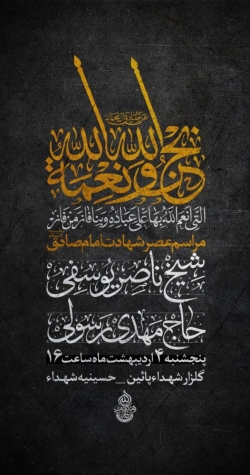 نحن والله نعمة الله
التی انعم الله بها علی عباده و بنا فاز من فاز
مراسم عصر شهادت امام صادق
شیخ ناصر یوسفی
حاج مهدی رسولی
پنجشنبه ۴ اردیبهشت ماه ساعت ۱۶
گلزار شهداء پائین _ حسینیه شهداء